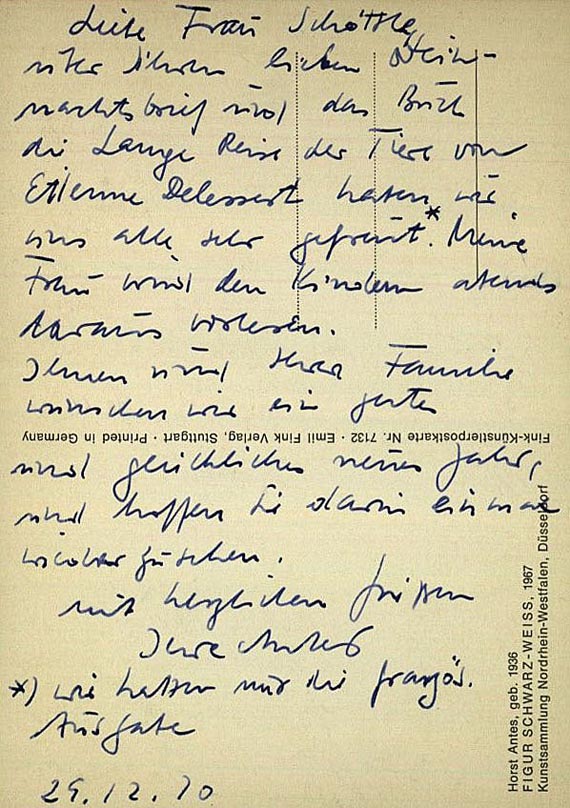 Liebe Frau Schöttle,
über Ihren lieben Weih-
nachtsbrief und das Buch
die Lange Reise der Tiere von
Etienne Delessert haben wir
uns alle sehr gefreut.* Meine
Frau wird den Kindern abends
daraus vorlesen.
Ihnen und Ihrer Familie
wünschen wir ein gutes
und glückliches neues Jahr,
und hoffen Sie darin einmal
wiederzusehen.
mit herzlichen Grüßen
Ihre Antes
*) wir hatten nur die französ.
Ausgabe
29.12.70
Fink-Künstlerpostkarte Nr. 7132 · Emil Fink Verlag, Stuttgart · Printed in Germany
Horst Antes, geb. 1936
FIGUR SCHWARZ-WEISS, 1967
Kunstsammlung Nordrhein-Westfalen, Düsseldorf